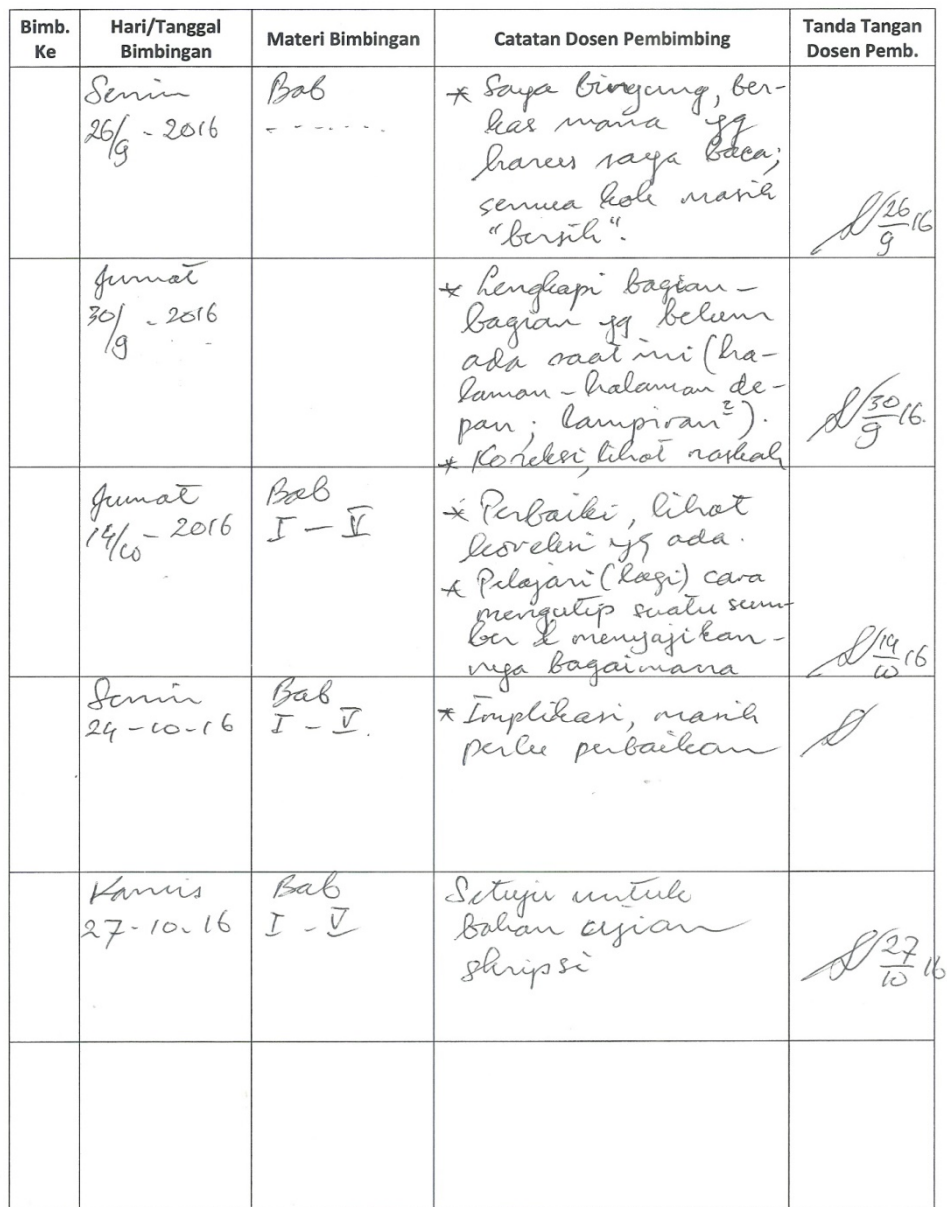 Bimb. Ke
Hari/Tanggal Bimbingan
Materi Bimbingan
Catatan Dosen Pembimbing
Tanda Tangan Dosen Pemb.
Senin
26/9 - 2016
Bab
- - - - - -
* Saya bingung, ber-
kas mana yg
harus saya baca;
semua kok masih
"bersih".
26/9 16
Jumat
30/9 - 2016
* Lengkapi bagian-
bagian yg belum
ada saat ini (ha-
laman-halaman de-
pan; lampiran²).
* Koreksi, lihat naskah
30/9 16.
Jumat
14/10 - 2016
Bab
I - V
* Perbaiki, lihat
koreksi yg ada.
* Pelajari (lagi) cara
mengutip suatu sum-
ber & menyajikan-
nya bagaimana
14/10 16
Senin
24-10-16
Bab
I - V.
* Implikasi, masih
perlu perbaikan
Kamis
27-10-16
Bab
I - V
Setuju untuk
bahan ujian
skripsi
27/10 16